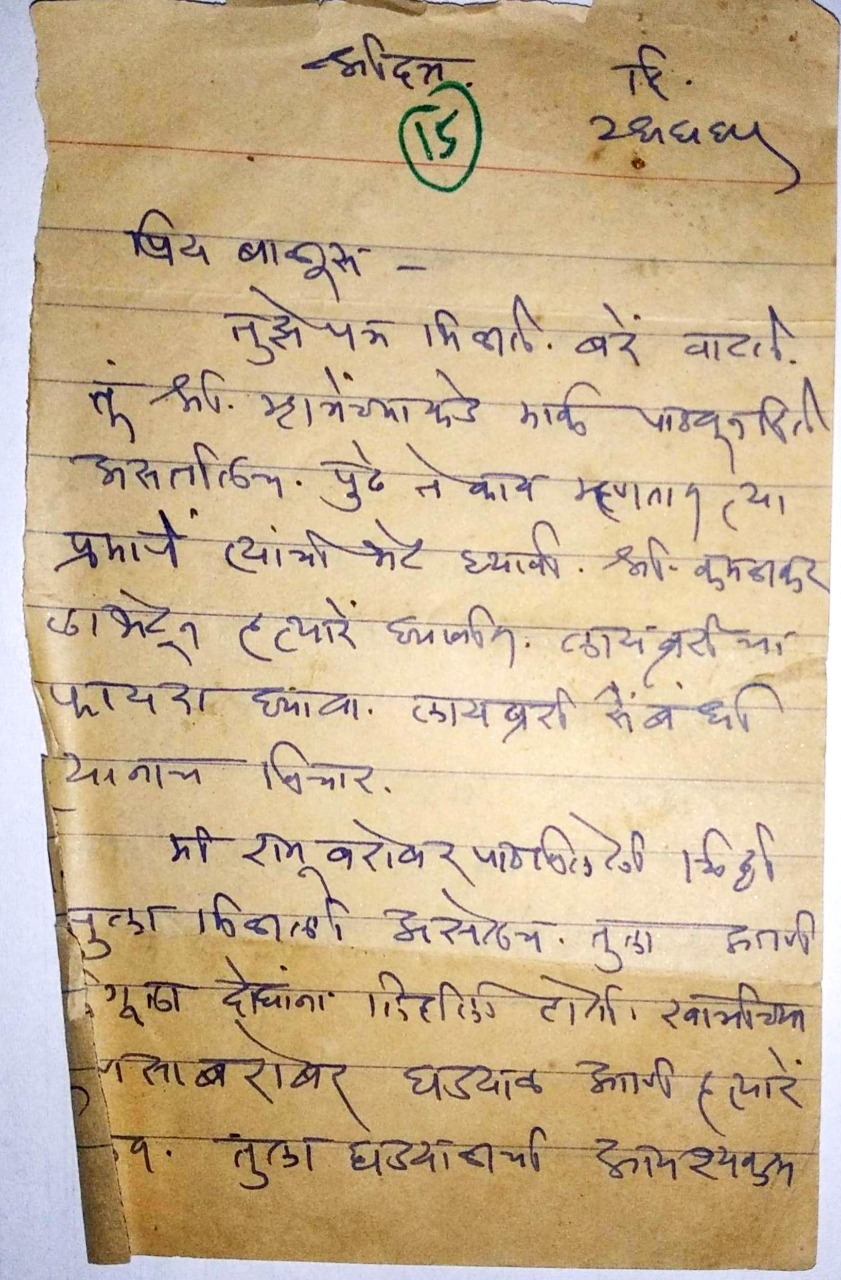 दि.
15
प्रिय बाळूस –
तुझे पत्र मिळाले. बरें वाटले.
तूं श्री. म्हात्रेंच्याकडे मार्क पाठवून दिले
असतीलच. पुढे ते काय म्हणतात त्या
प्रमाणें त्यांची भेट घ्यावी. श्री. कुमठाकर
ला भेटून हत्यारें घ्यावीत. लायब्ररीचा
फायदा घ्यावा. लायब्ररी संबंधी
यानाच विचार.
मी रामू बरोबर पाठविलेली चिठ्ठी
तुला मिळाली असेलच. तुला आणि
दोघांना लिहिली होती. स्वामींच्या
बरोबर घड्याळ आणि हत्यारें
तुला घड्याळाची आवश्यकता